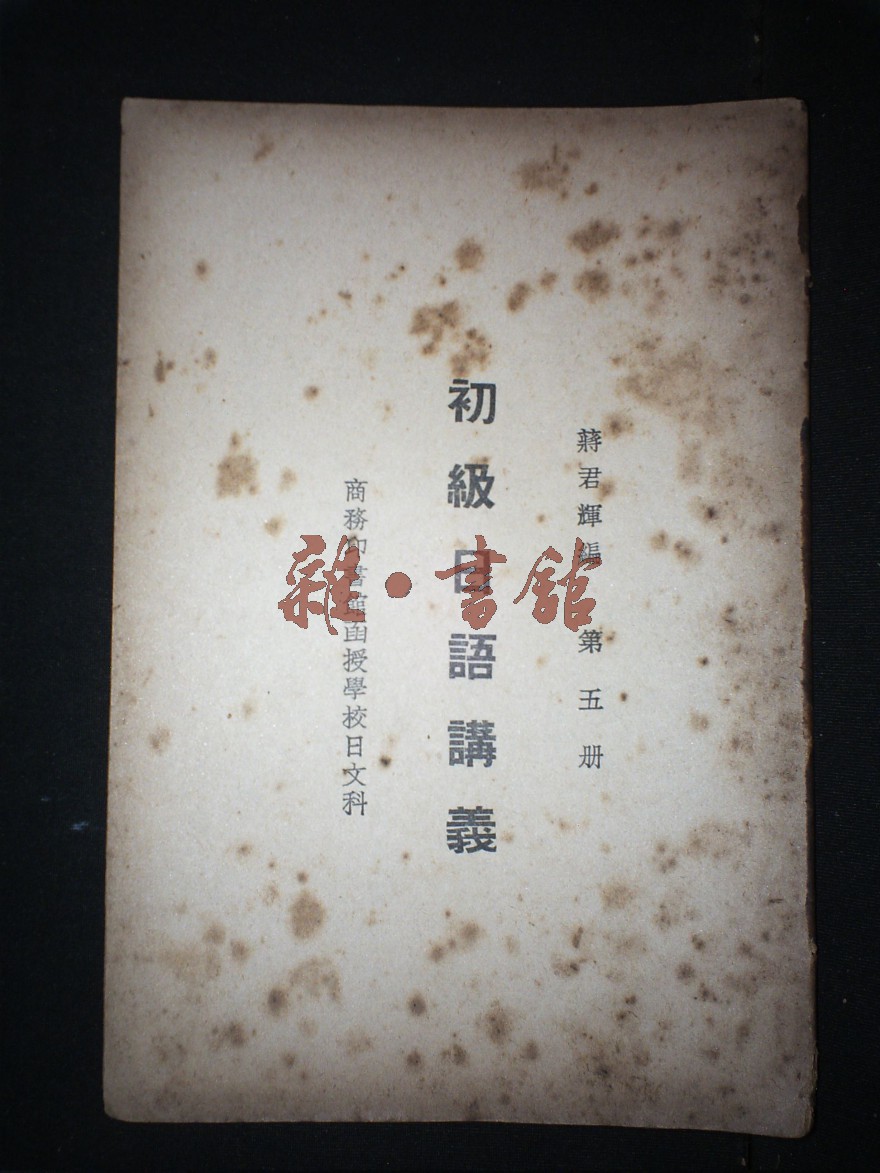 蔣君輝編 第五册
初級日語講義
商務印書館函授學校日文科
雜·書館